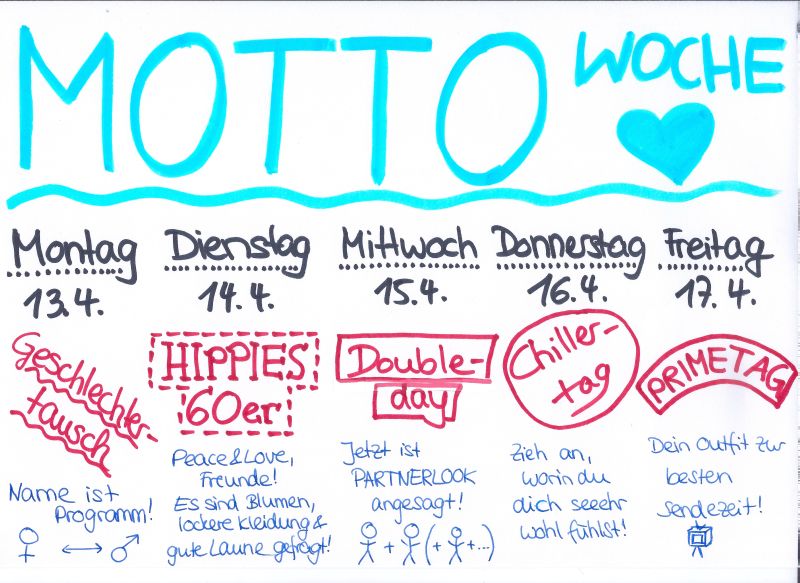 MOTTO
WOCHE
Montag
13.4.
Geschlechter-
tausch
Name ist
Programm!
Dienstag
14.4.
HIPPIES
60er
Peace & Love,
Freunde!
Es sind Blumen,
lockere Kleidung &
gute Laune gefragt!
Mittwoch
15.4.
Double-
day
Jetzt ist
PARTNERLOOK
angesagt!
+ (+ + ...)
Donnerstag
16.4.
Chiller-
tag
Zieh an,
worin du
dich seeehr
wohl fühlst!
Freitag
17.4.
PRIMETAG
Dein Outfit zur
besten
Sendezeit!